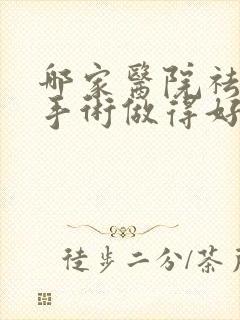 哪家醫院祛
手術做得好
徒步二分/茶戶